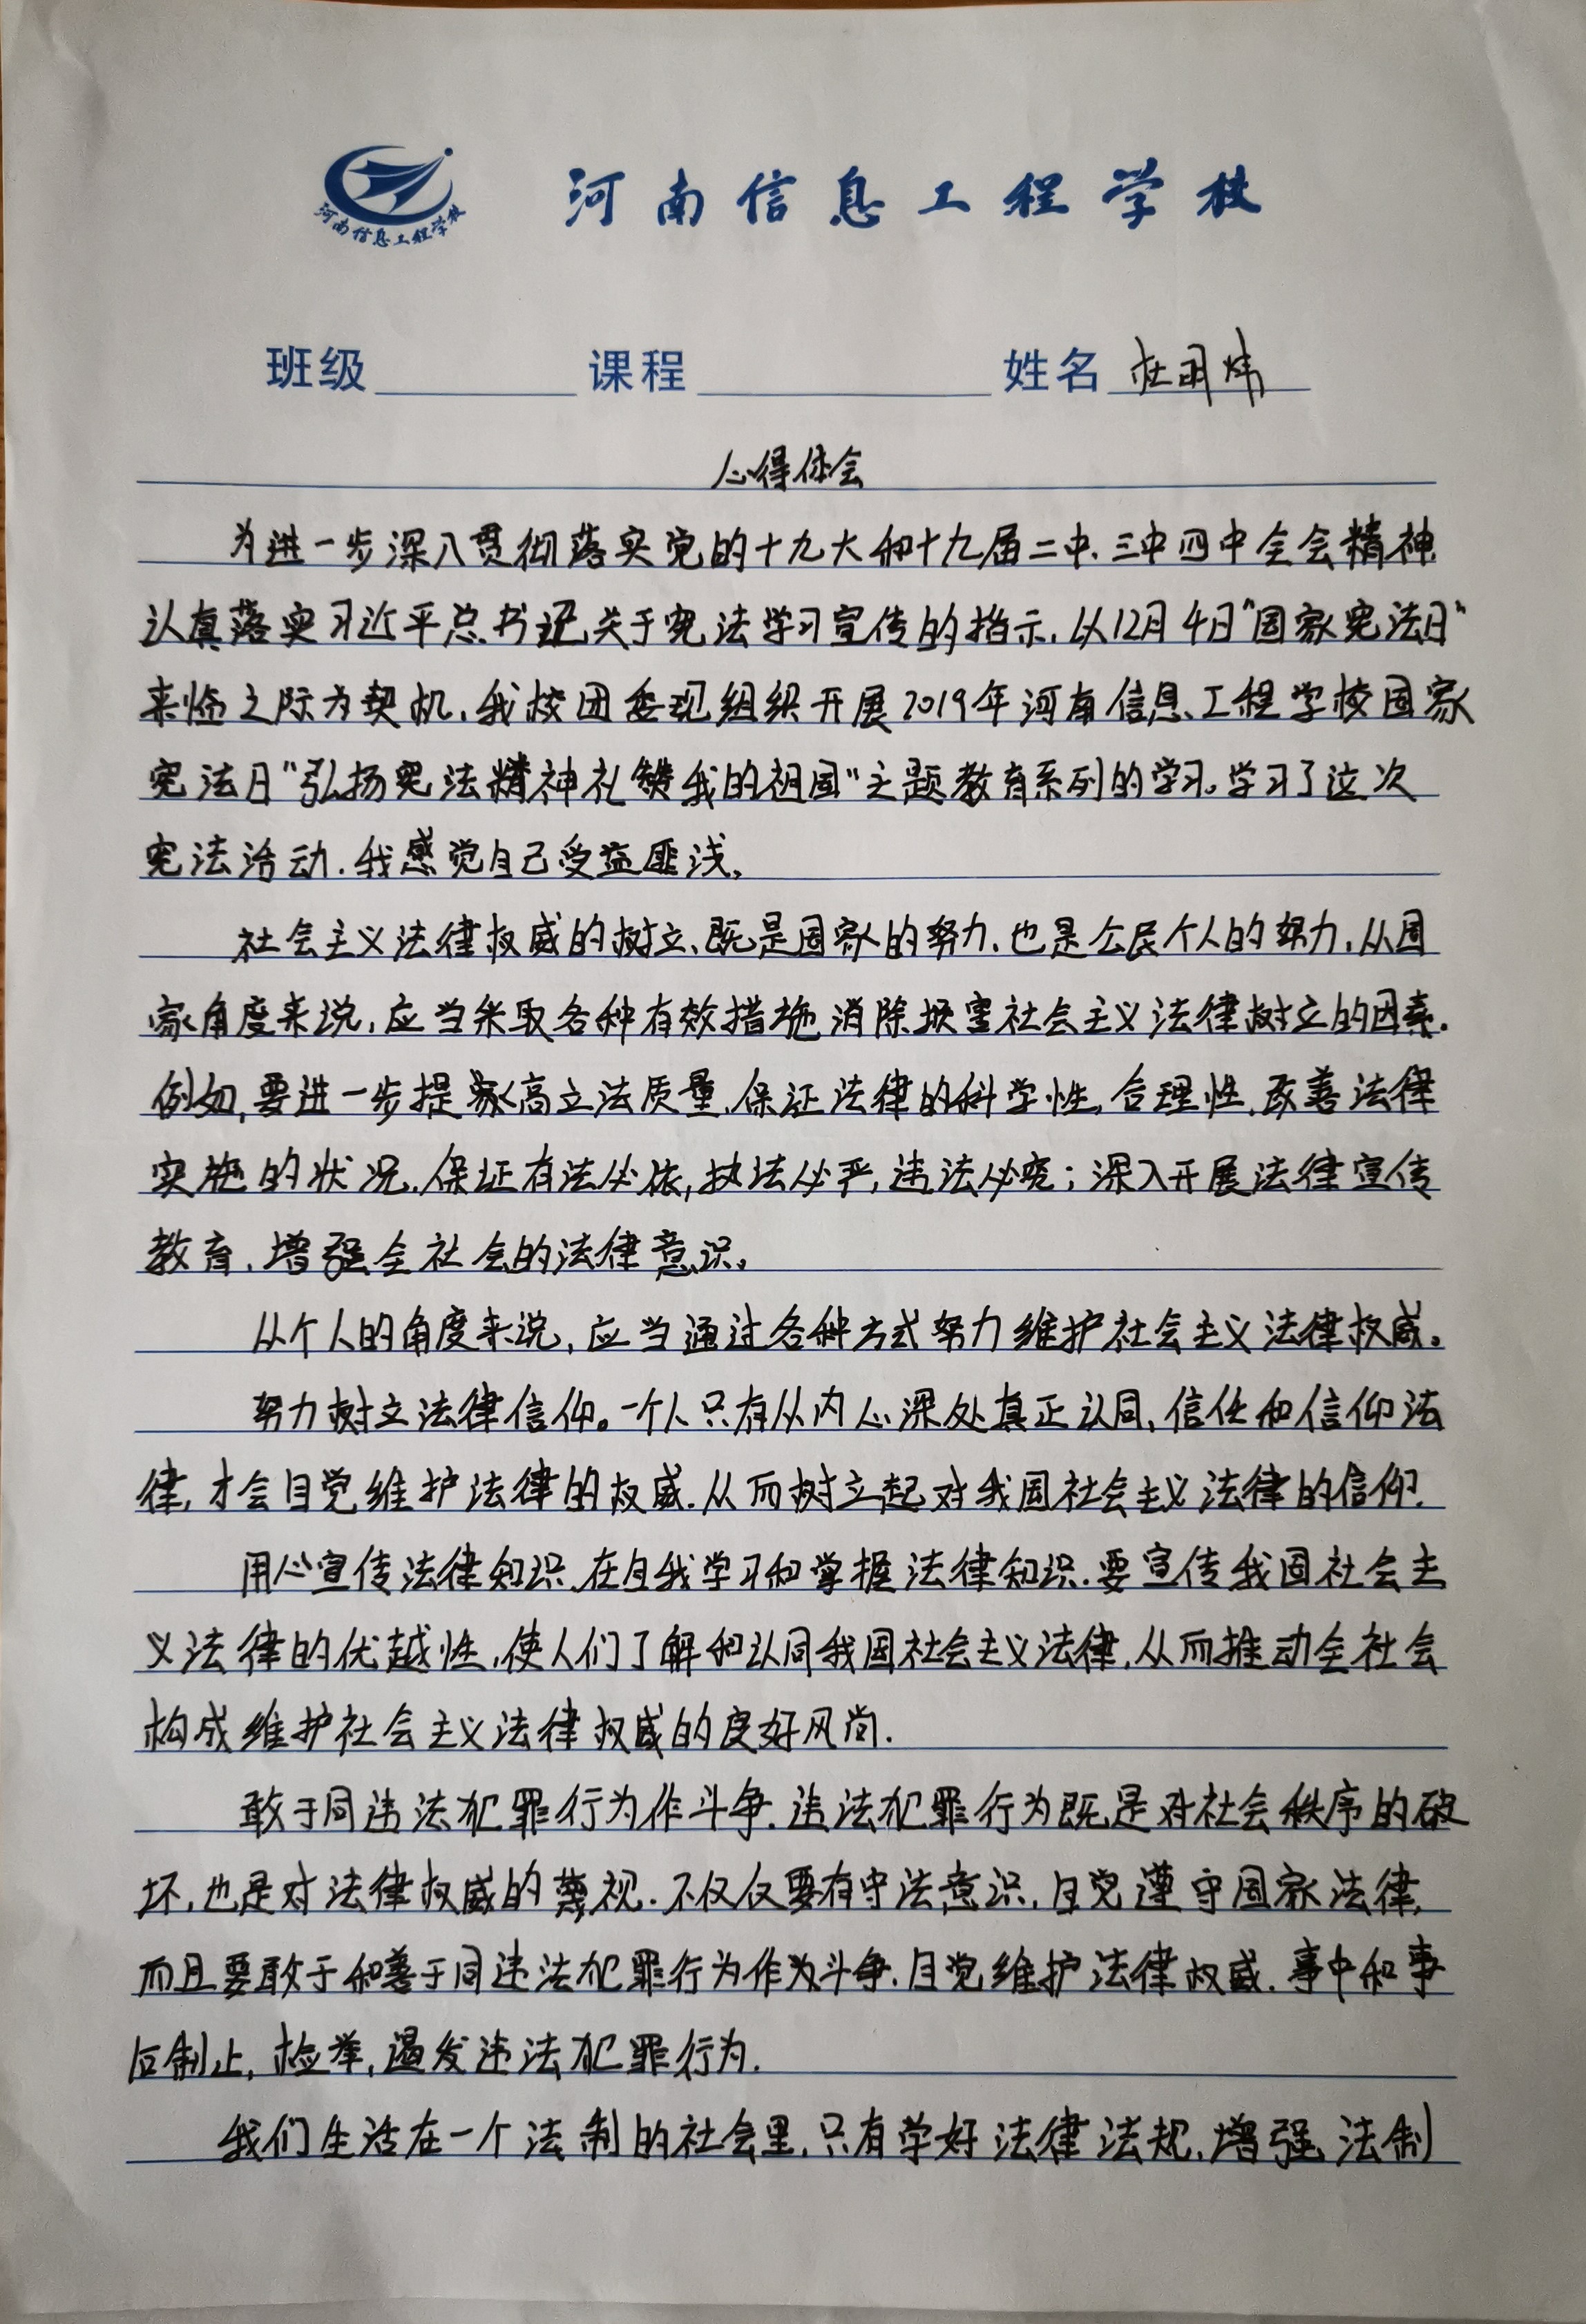 河南信息工程学校
河南信息工程学校
班级 课程 姓名 杜明炜
心得体会
为进一步深入贯彻落实党的十九大和十九届二中、三中四中全会精神
认真落实习近平总书记关于宪法学习宣传的指示,以12月4日"国家宪法日"
来临之际为契机,我校团委现组织开展2019年河南信息工程学校国家
宪法日"弘扬宪法精神礼赞我的祖国"主题教育系列的学习。学习了这次
宪法活动.我感觉自己受益匪浅。
社会主义法律权威的树立、既是国家的努力、也是公民个人的努力,从国
家角度来说,应当采取各种有效措施消除损害社会主义法律树立的因素.
例如,要进一步提高立法质量,保证法律的科学性,合理性,改善法律
实施的状况,保证有法必依,执法必严,违法必究;深入开展法律宣传
教育,增强全社会的法律意识。
从个人的角度来说,应当通过各种方式努力维护社会主义法律权威。
努力树立法律信仰。一个人只有从内心深处真正认同,信任和信仰法
律,才会自觉维护法律的权威.从而树立起对我国社会主义法律的信仰.
用心宣传法律知识,在自我学习和掌握法律知识.要宣传我国社会主
义法律的优越性,使人们了解和认同我国社会主义法律,从而推动全社会
构成维护社会主义法律权威的良好风尚.
敢于同违法犯罪行为作斗争.违法犯罪行为既是对社会秩序的破
坏,也是对法律权威的蔑视.不仅仅要有守法意识,自觉遵守国家法律,
而且要敢于和善于同违法犯罪行为作为斗争.自觉维护法律权威.事中和事
后制止,检举,揭发违法犯罪行为.
我们生活在一个法制的社会里,只有学好法律法规,增强法制